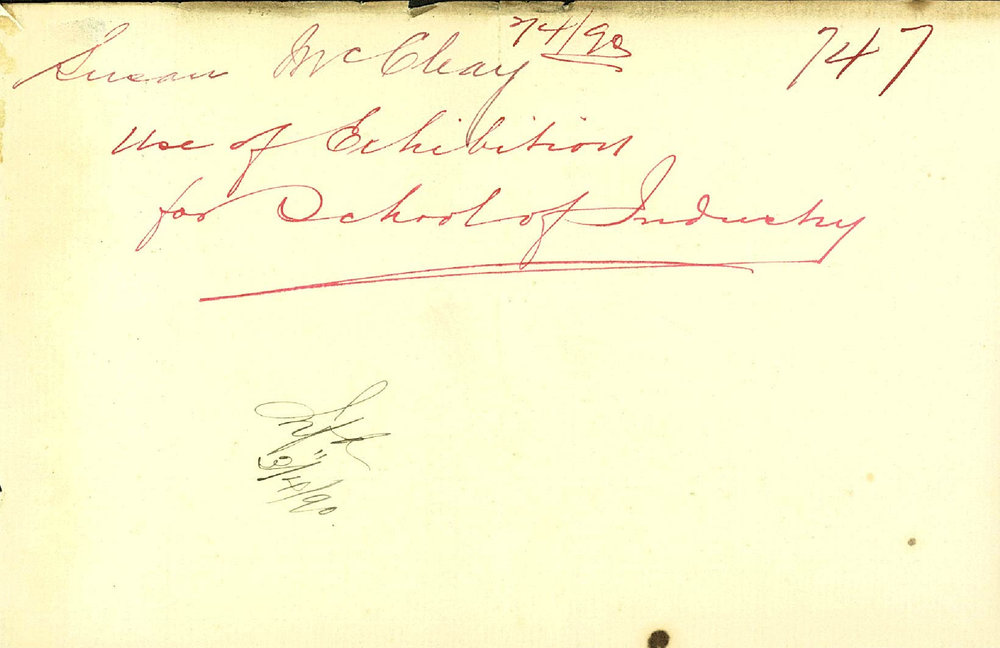 Susan McCleay 7/4/90 747
Use of Exhibition
for School of Industry
3/4/90.